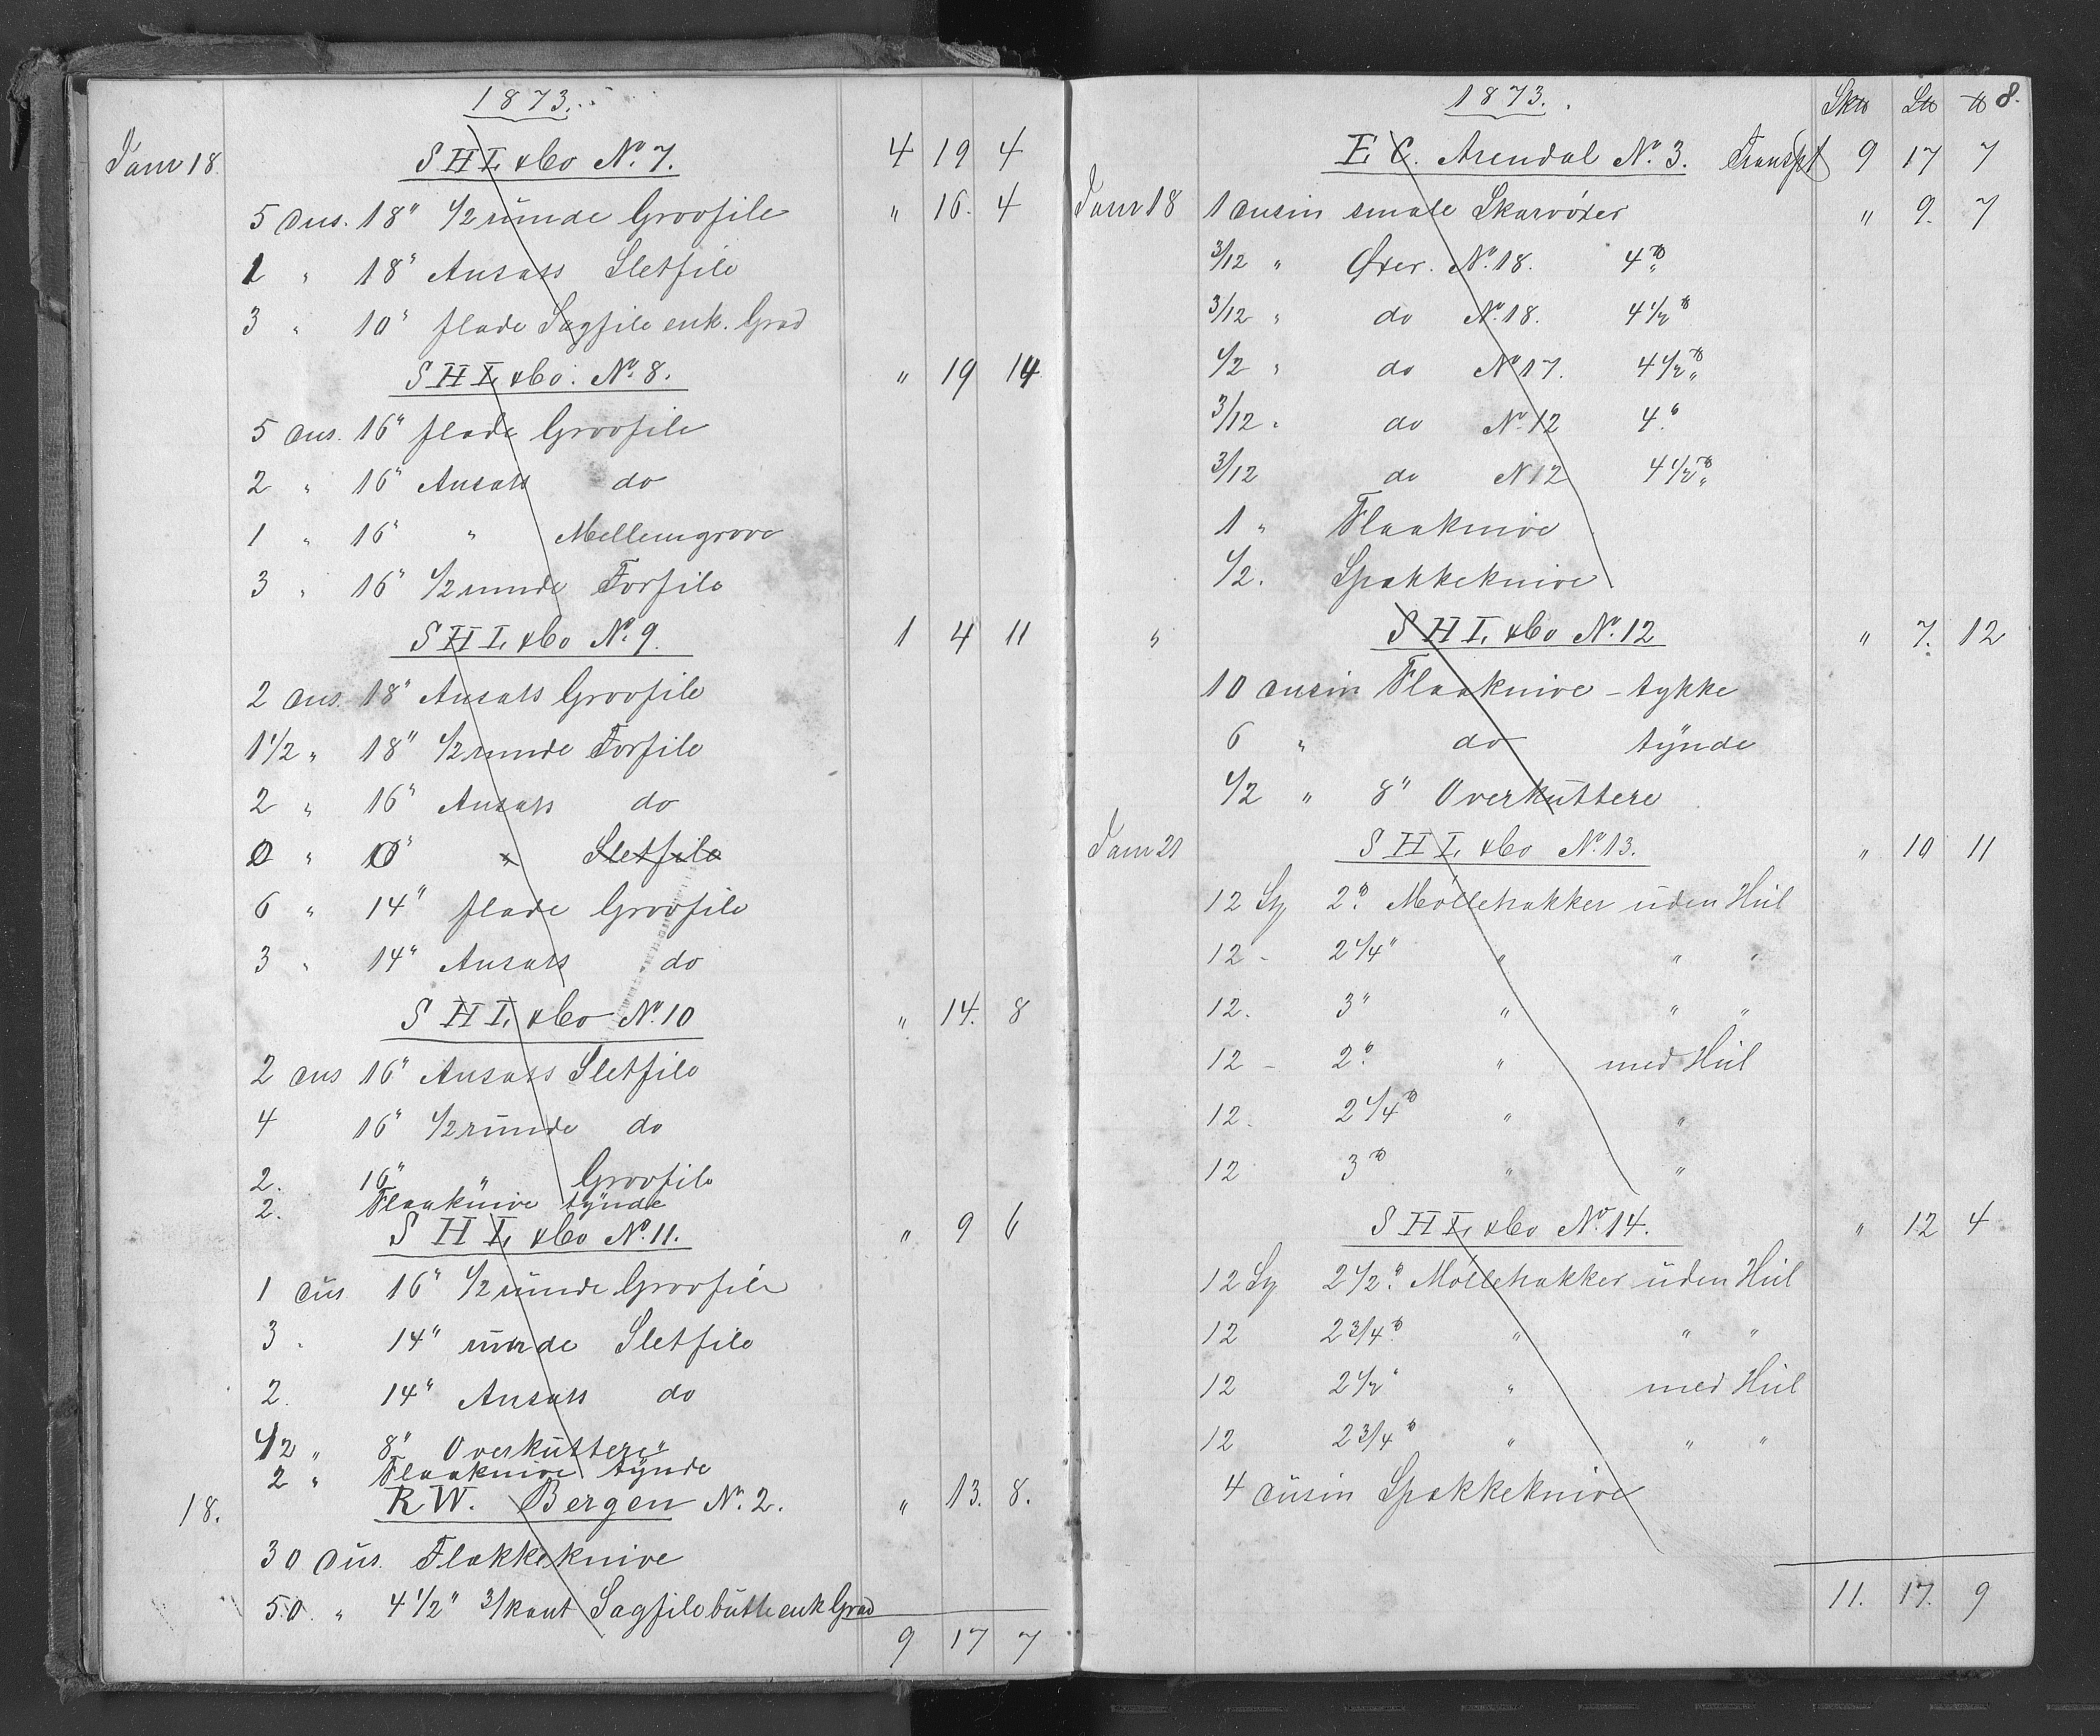 1873.
4 19 4
Janr 18. S H L & Co No. 7. " 16. 4
5 dus. 18" 1/2 runde Grovfile
1 " 18" Ansats Sletfile
3 " 10" flade Sagfile enk. Grad
S H L & Co. No. 8. " 19 14
5 dus. 16" flade Grovfile
2 " 16" Ansats do
1 " 16" " Mellemgrove
3 " 16" 1/2 runde Forfile
S H L & Co No. 9. 1 4 11
2 dus. 18" Ansats Grovfile
1 1/2 " 18" 1/2 runde Forfile
2 " 16" Ansats do
0 " 10" " Sletfile
6 " 14" flade Grovfile
3 " 14" Ansats do
S H L & Co No. 10 " 14. 8
2 dus 16" Ansats Sletfile
4 16" 1/2 runde do
2. 16" " Grovfile
2. Flaaknive tynde
S H L & Co No. 11. " 9 6
1 dus 16" 1/2 runde Grovfile
3 " 14" runde Sletfile
2. 14" Ansats do
1/2 " 8" Overkuttere
2 " Flaaknive tynde
18. R W. Bergen No. 2. " 13. 8.
30 dus. Flækkeknive
50. " 4 1/2" 3/kant Sagfile butte enk Grad
9 17 7
1873. Sk℔ L℔ ℔ 8.
E C. Arendal No. 3. Transpt 9 17 7
Janr 18 1 dusin smale Skarvøxer " 9. 7
3/12 " Øxer. No. 18. 4 ℔
3/12 " do No. 18. 4 1/2 ℔
1/2 " do No 17. 4 1/2 ℔
3/12 " do No 12 4 "
3/12 do N 12 4 1/2 ℔
1 " Flaaknive
1/2. Spækkeknive
" S H L & Co No. 12 " 7. 12
10 dusin Flaaknive - tykke
6 " do tynde
1/2 " 8" Overkuttere
Janr 21 S H L & Co No. 13. " 10 11
12 St 2 ℔ Møllehakker uden Hul
12 - 2 1/4 " " " "
12. 3 " " " "
12 - 2 ℔ " med Hul
12. 2 1/4 ℔ " "
12 3 ℔ " "
S H L & Co No. 14. " 12 4
12 St 2 1/2 ℔ Møllehakker uden Hul
12 2 3/4 ℔ " " "
12 2 1/2 " " med Hul
12 2 3/4 ℔ " " "
4 dusin Spækkeknive
11. 17. 9